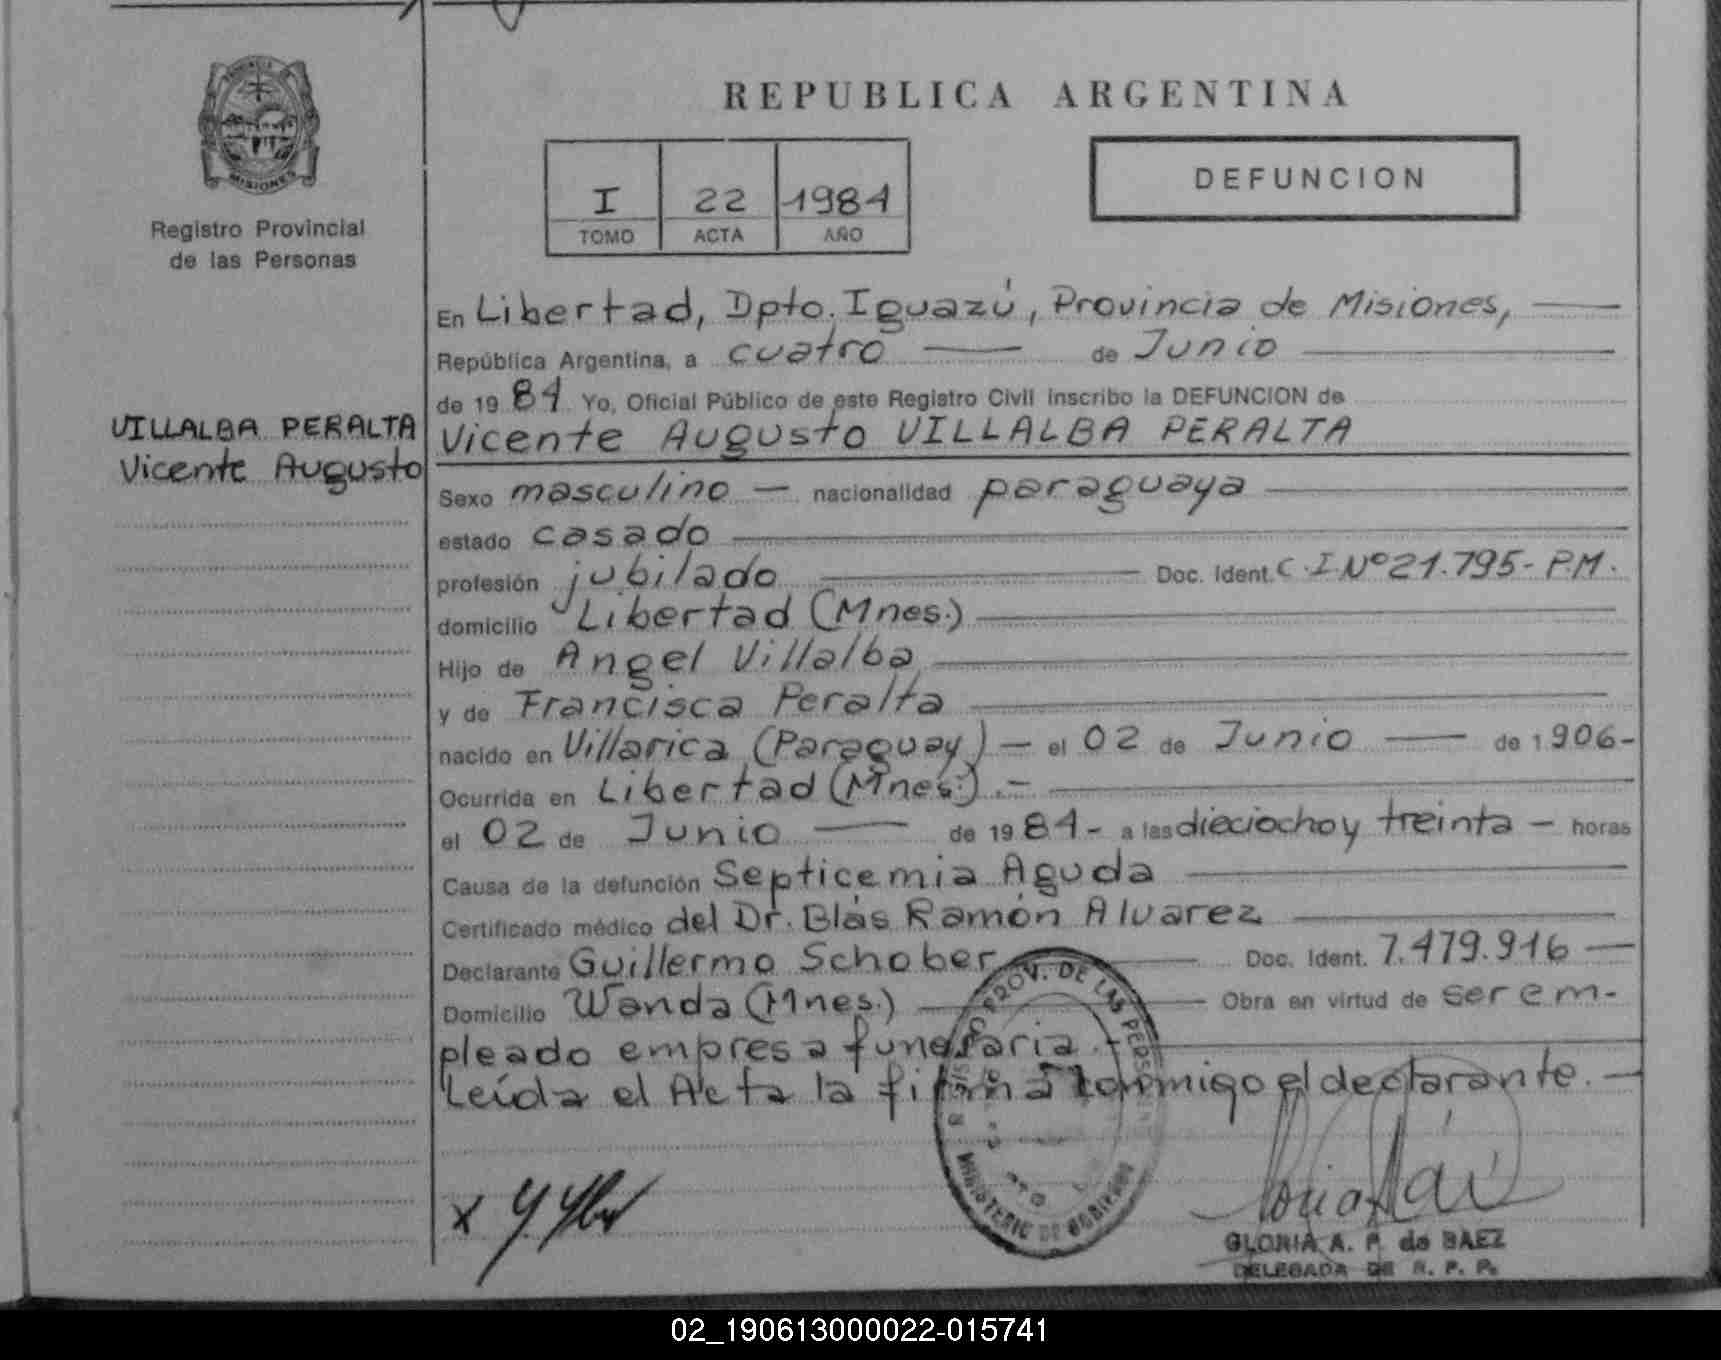 REPUBLICA ARGENTINA
PROVINCIA DE
MISIONES
Registro Provincial
de las Personas
I 22 1984
TOMO ACTA AÑO
DEFUNCION
En Libertad, Dpto. Iguazú, Provincia de Misiones,
República Argentina, a cuatro de Junio
de 1984 Yo, Oficial Público de este Registro Civil inscribo la DEFUNCION de
VILLALBA PERALTA
Vicente Augusto
Vicente Augusto VILLALBA PERALTA
Sexo masculino — nacionalidad paraguaya
estado casado
profesión jubilado Doc. Ident. C.I Nº 21.795- P.M.
domicilio Libertad (Mnes.)
Hijo de Angel Villalba
y de Francisca Peralta
nacido en Villarica (Paraguay) — el 02 de Junio — de 1906-
Ocurrida en Libertad (Mnes.).-
el 02 de Junio — de 1984- a las dieciocho y treinta — horas
Causa de la defunción Septicemia Aguda
Certificado médico del Dr. Blás Ramón Alvarez
Declarante Guillermo Schober Doc. Ident. 7.479.946 —
Domicilio Wanda (Mnes.) Obra en virtud de ser em-
pleado empresa funeraria.-
Leída el Acta la firma conmigo el declarante.-
PROV. DE LAS PERSONAS
MINISTERIO DE GOBIERNO
x
GLORIA A. P. de BAEZ
DELEGADA DE R. P. P.
02_190613000022-015741